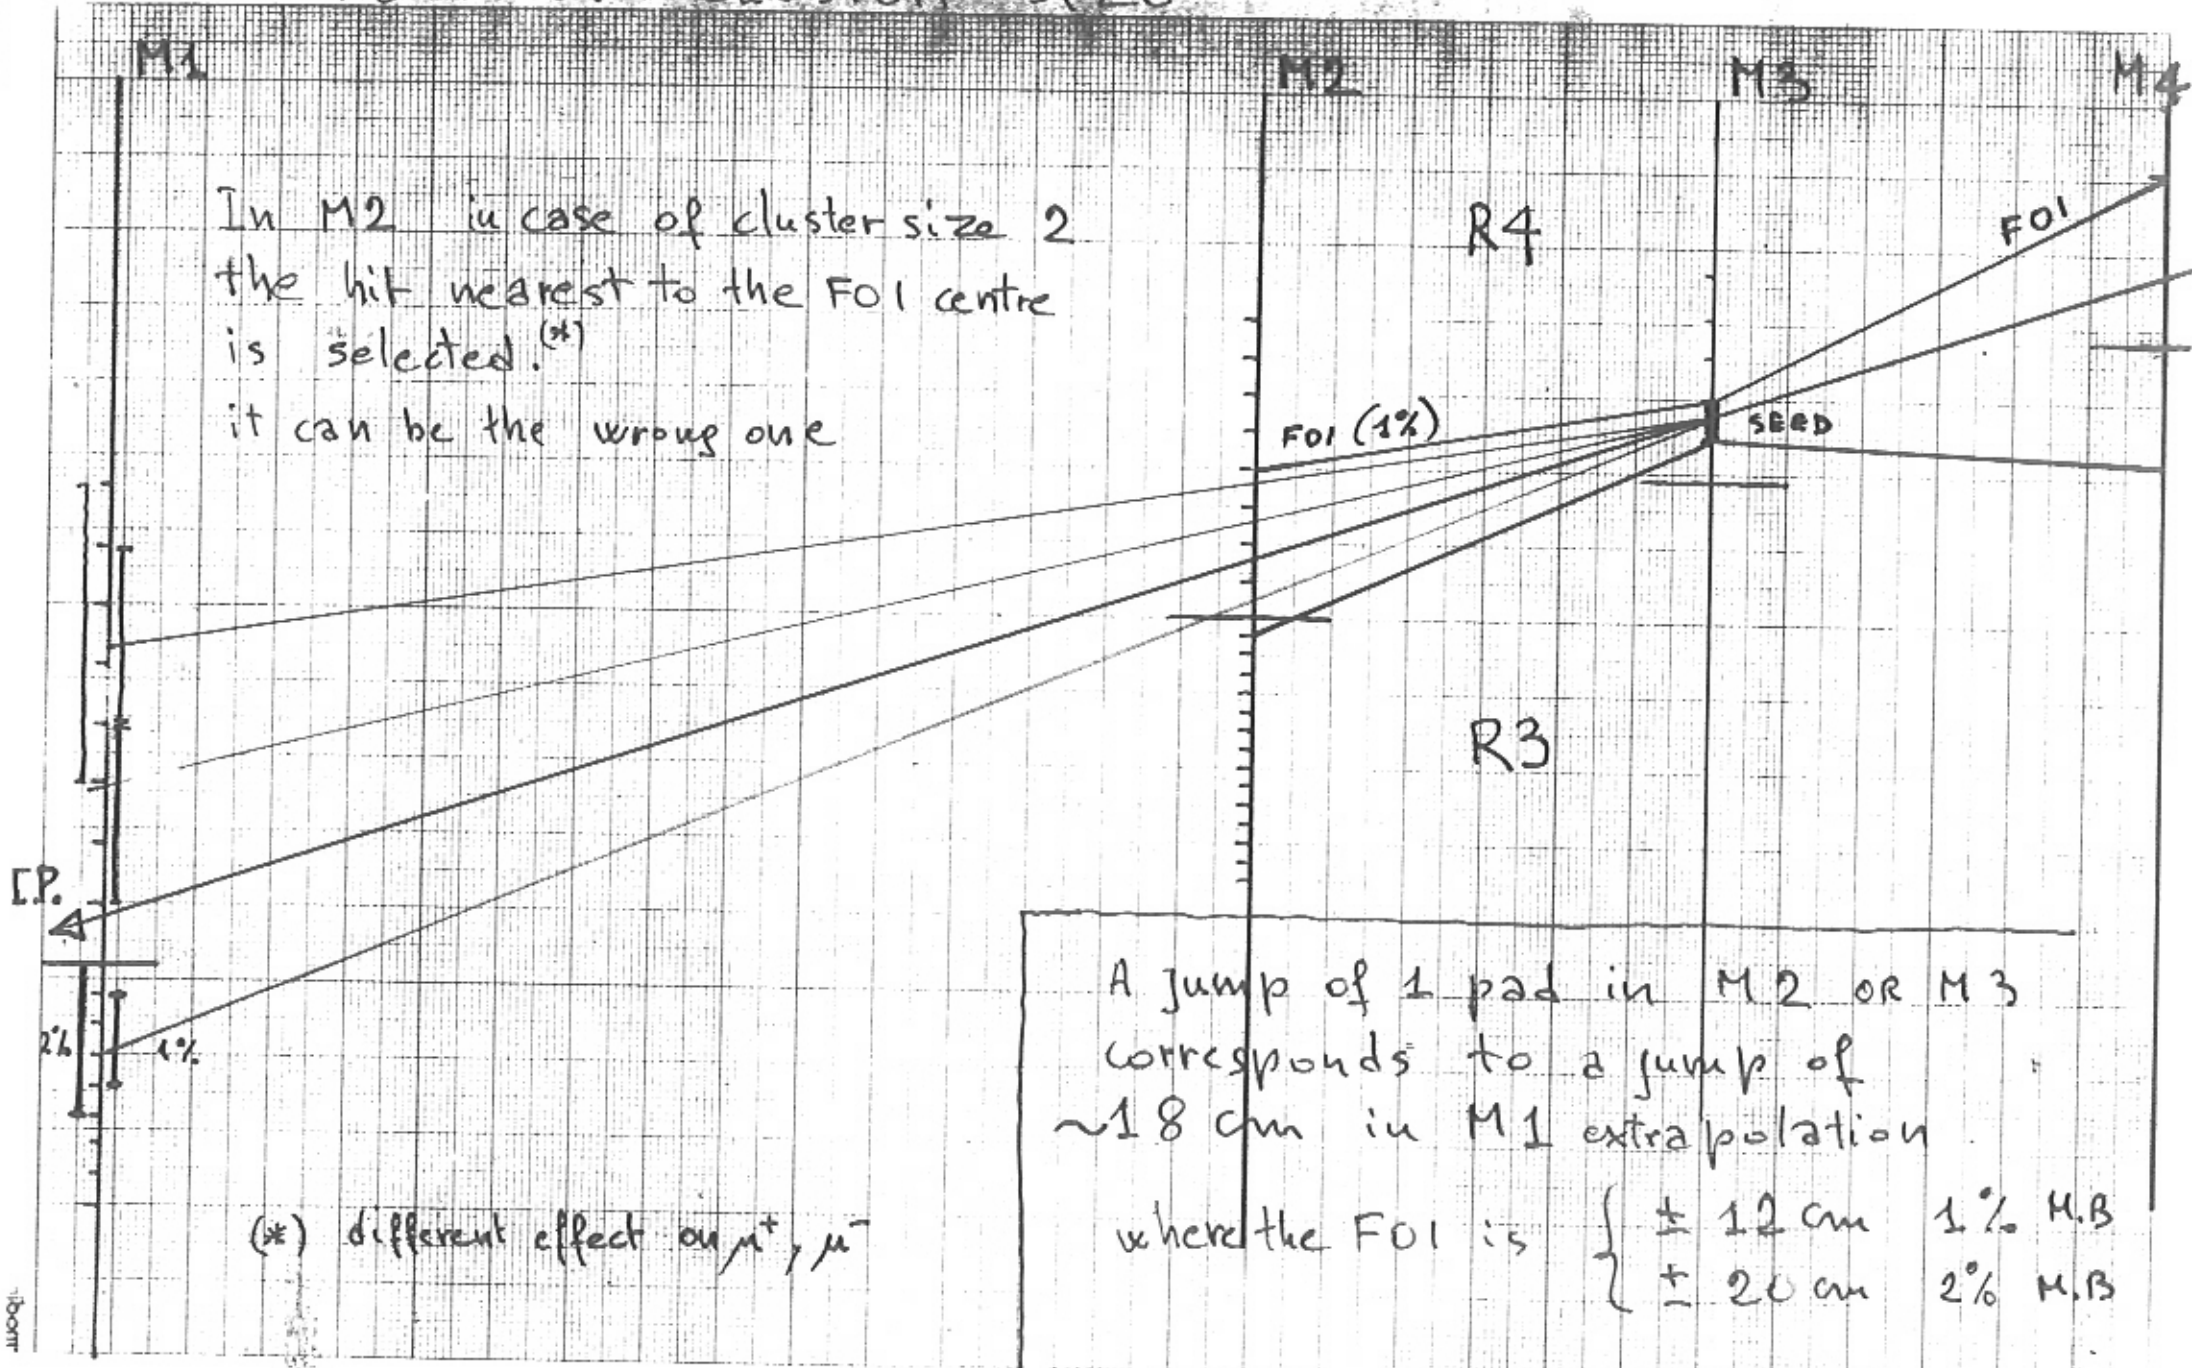 M1
M2
M3
M4
In M2 in case of cluster size 2
the hit nearest to the FOI centre
is selected.(*)
it can be the wrong one
R4
FOI
FOI (1%)
SEED
R3
I.P.
2%
1%
A jump of 1 pad in M2 OR M3
corresponds to a jump of
~18 cm in M1 extrapolation
where the FOI is { ± 12 cm 1% M.B
± 20 cm 2% M.B
(*) different effect on μ+, μ-